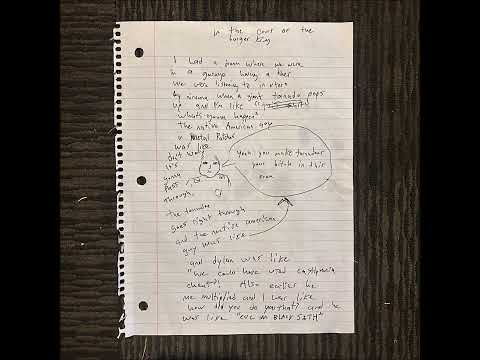 in the court of the
burger king
I had a dream where we were
in a garage having a beer
we were listening to in utero
by nirvana when a giant tornado pops
up and I'm like
whats gonna happen"
the native American guy
in Metal Patches
was like
dont worry
it's
gonna
Pass
through,
Yeah you make tornadoes
your bitch in this
room
the tornado
goes right through
and the native american
guy was like
and dylan was like
"we could have used
cheats" Also earlier he
me multiplied and I was like
how did you do that? and he
was like "
BLACK SABBATH"